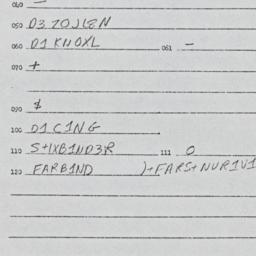 040 –
050 D3 ZOJLEN
060 D1 KNOXL 061 –
070 +
090 $
100 D1 C1NG
110 S+IXB1ND3R 111 0
120 FARB1ND )+FARS+NUR1V1